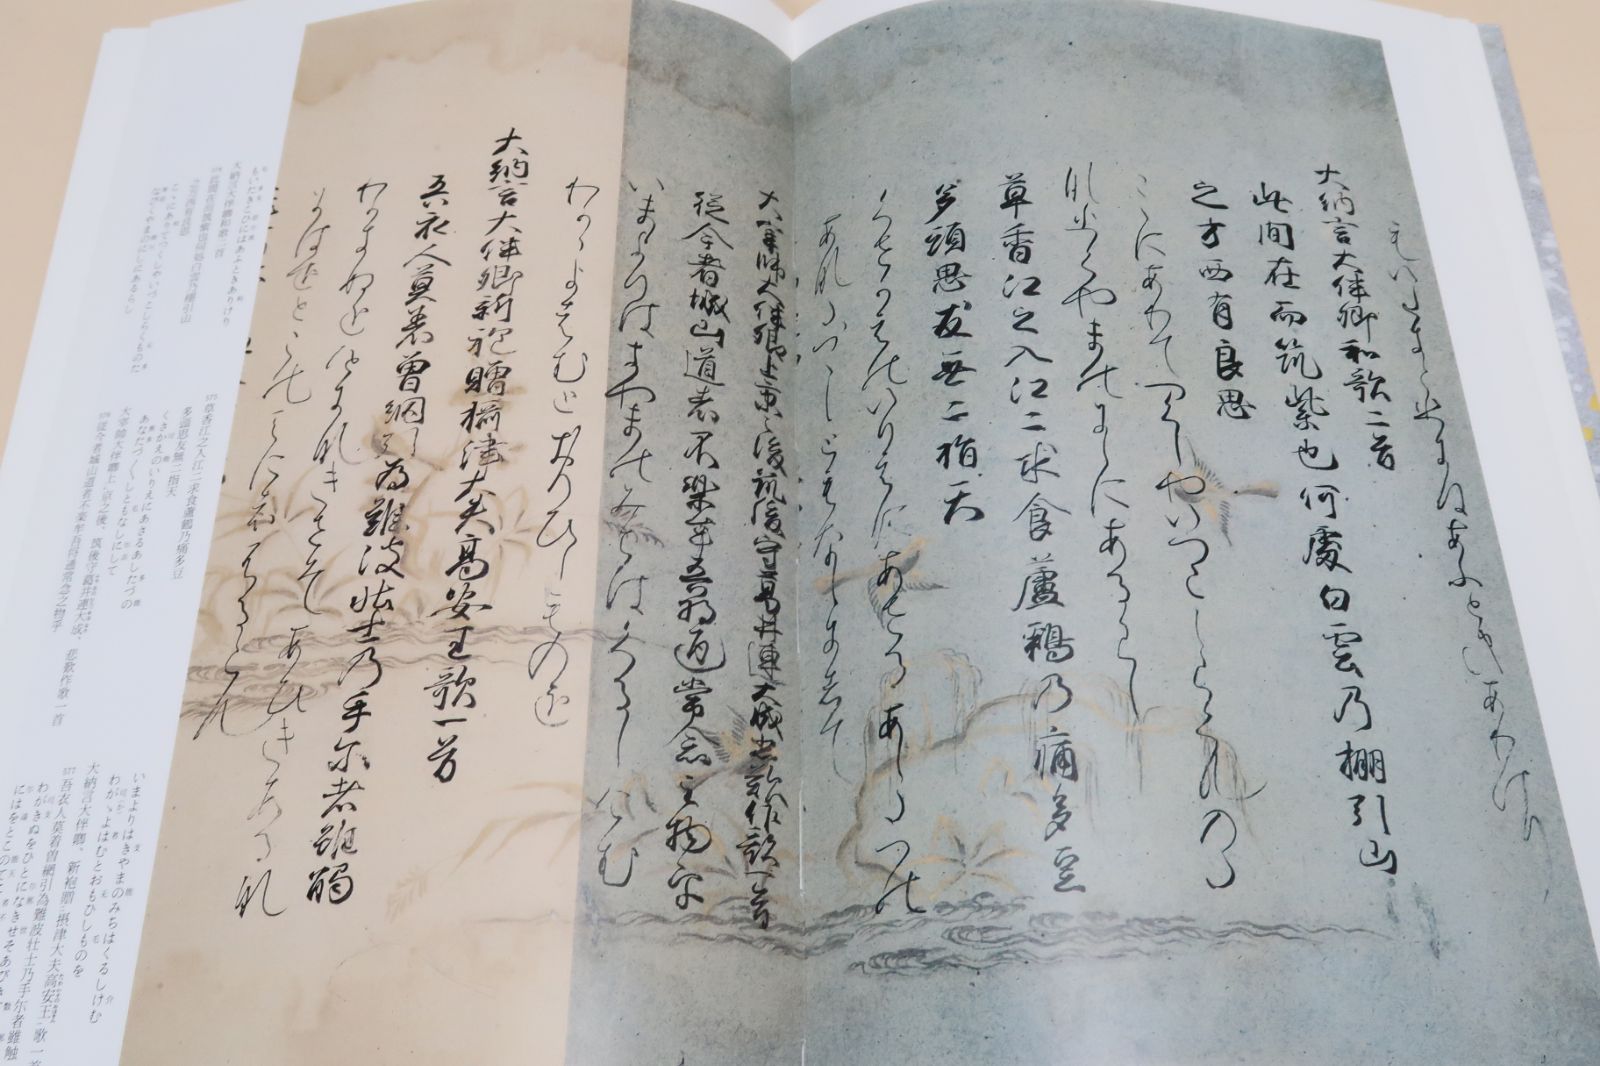 もいたきこひにはあふときありけり
大納言大伴卿和歌二首
此間在而筑紫也何處白雲乃棚引山
之方西有良思
こゝにありてつくしやいつこしらくものた
なひくやまのにしにあるらし
草香江之入江二求食蘆鶴乃痛多豆
多頭思友無二指天
くさかえのいりえにあさるあしたつの
あなたつ／＼しともなしにして
大宰帥大伴卿上京之後筑後守葛井連大成悲歎作歌一首
從今者城山道者不樂牟吾将通常念之物乎
いまよりはきやまのみちはくるしけむ
わかゝよはむとおもひしものを
大納言大伴卿新袍贈攝津大夫高安王歌一首
吾衣人莫著曽網引為難波壮士乃手尓者雖觸
もいたきこひにはあふときありけり
大納言大伴卿和歌二首
574此間在而筑紫也何処白雲乃棚引山
之方西有良思
こゝにありてつくしやいづこしらくものた
なびくやまのにしにあるらし
575草香江之入江二求食蘆鶴乃痛多豆
多頭思友無二指天
くさかえのいりえにあさるあしたづの
あなたづ〱しともなしにして
大宰帥大伴卿上京之後、筑後守葛井連大成、悲歎作歌一首
576従今者城山道者不楽牟吾将通常念之物乎
いまよりはきやまのみちはくるしけむ
わがゝよはむとおもひしものを
大納言大伴卿、新袍贈摂津大夫高安王歌一首
577吾衣人莫着曽網引為難波壮士乃手尓者雖触
わがきぬをひとになきせそあびき
にはをとこのて